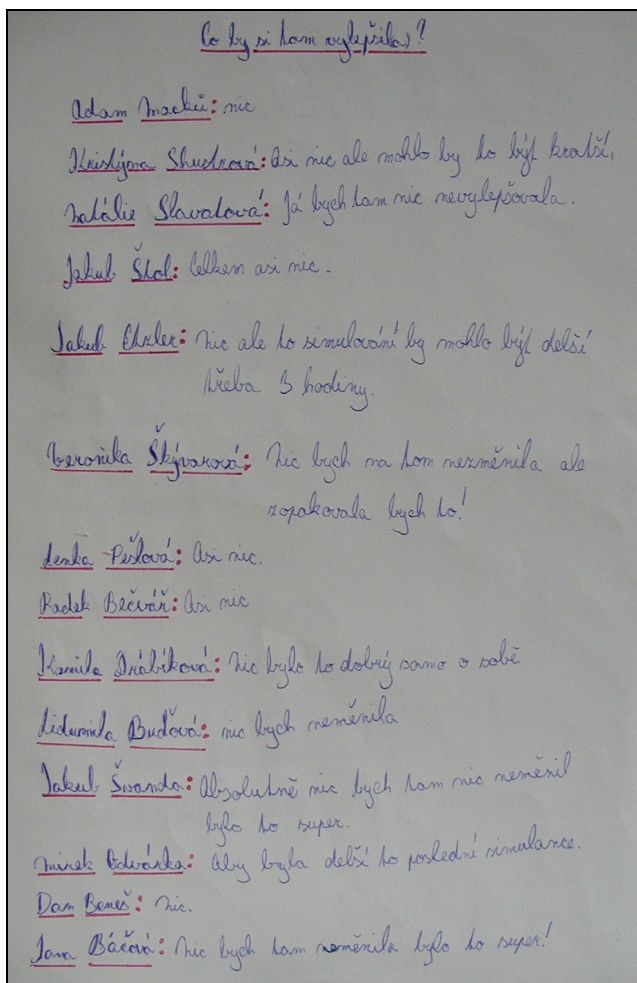 Co by si tam vylepšil(a)?
Adam Macků: nic
Kristýna Shustrová: Asi nic ale mohlo by to být kratší.
Natálie Slavatová: Já bych tam nic nevylepšovala.
Jakub Štol: Celkem asi nic.
Jakub Ehrler: Nic ale to simulování by mohlo být delší
třeba 3 hodiny.
Veronika Škývarová: Nic bych na tom nezměnila ale
zopakovala bych to!
Lenka Pešlová: Asi nic.
Radek Bečvář: Asi nic
Kamila Drábíková: Nic bylo to dobrý samo o sobě
Lidumila Buďová: nic bych neměnila
Jakub Švanda: Absolutně nic bych tam nic neměnil
bylo to super.
Mirek Odvárka: Aby byla delší to poslední simulance.
Dan Beneš: Nic.
Jana Báčová: Nic bych tam neměnila bylo to super!